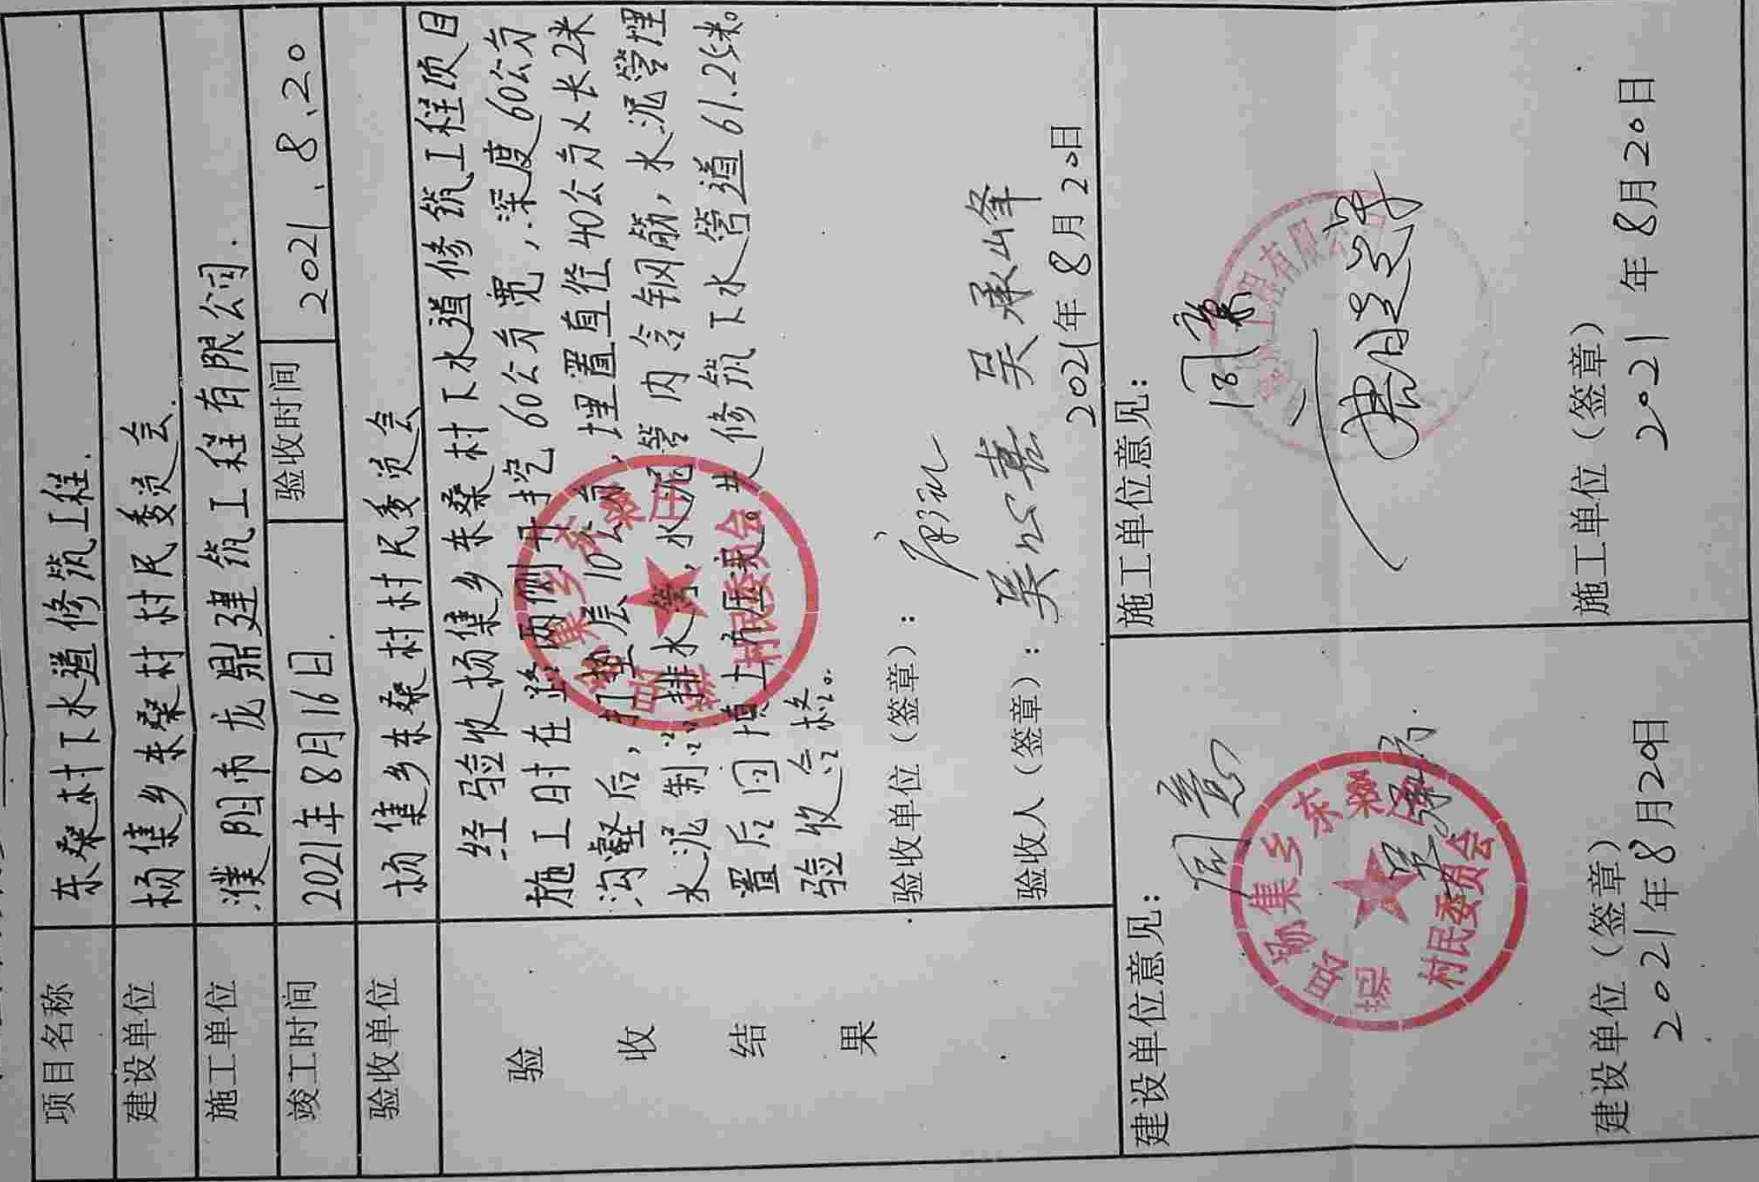 项目名称 东桑村下水道修筑工程.
建设单位 杨集乡东桑村村民委员会.
施工单位 濮阳市龙鼎建筑工程有限公司.
竣工时间 2021年8月16日. 验收时间 2021.8.20
验收单位 杨集乡东桑村村民委员会
验收结果
经验收杨集乡东桑村下水道修筑工程项目
施工时在路两侧开挖60公分宽,深度60公分
沟壑后,层10公分,埋置直径40公分×长2米
水泥制排水管,水泥管内含钢筋,水泥管埋
置后回填土压实。共修筑下水管道61.25米。
验收合格。
验收单位(签章):
验收人(签章): 吴承峰
2021年8月20日
杨集乡东桑庄
村民委员会
建设单位意见: 同意
杨集乡东桑庄
村民委员会
建设单位(签章)
2021年8月20日
施工单位意见: 同意
工程有限公
施工单位(签章)
2021年8月20日